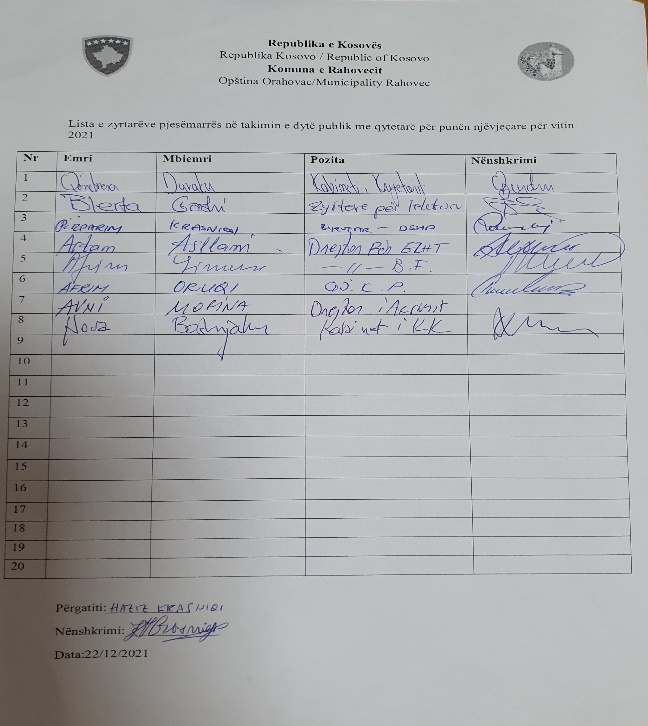 Republika e Kosovës
Republika Kosovo / Republic of Kosovo
Komuna e Rahovecit
Opština Orahovac/Municipality Rahovec
Lista e zyrtarëve pjesëmarrës në takimin e dytë publik me qytetarë për punën njëvjeçare për vitin
2021
Nr Emri Mbiemri Pozita Nënshkrimi
1 Qëndresa Duraku Kabineti, Kryetarit
2 Blerta Gashi Zyrtare për
3 PËRPARIM KRASNIQI ZYRTAR -
4 Artan Asllani Drejtor Për EZHT
5 Afrim -11- B.F.
6 AFRIM ORUQI
7 AVNI MORINA Drejtor i
8 Nora Kabinet i KK
9
10
11
12
13
14
15
16
17
18
19
20
Përgatiti: HAZIZ KRASNIQI
Nënshkrimi:
Data:22/12/2021